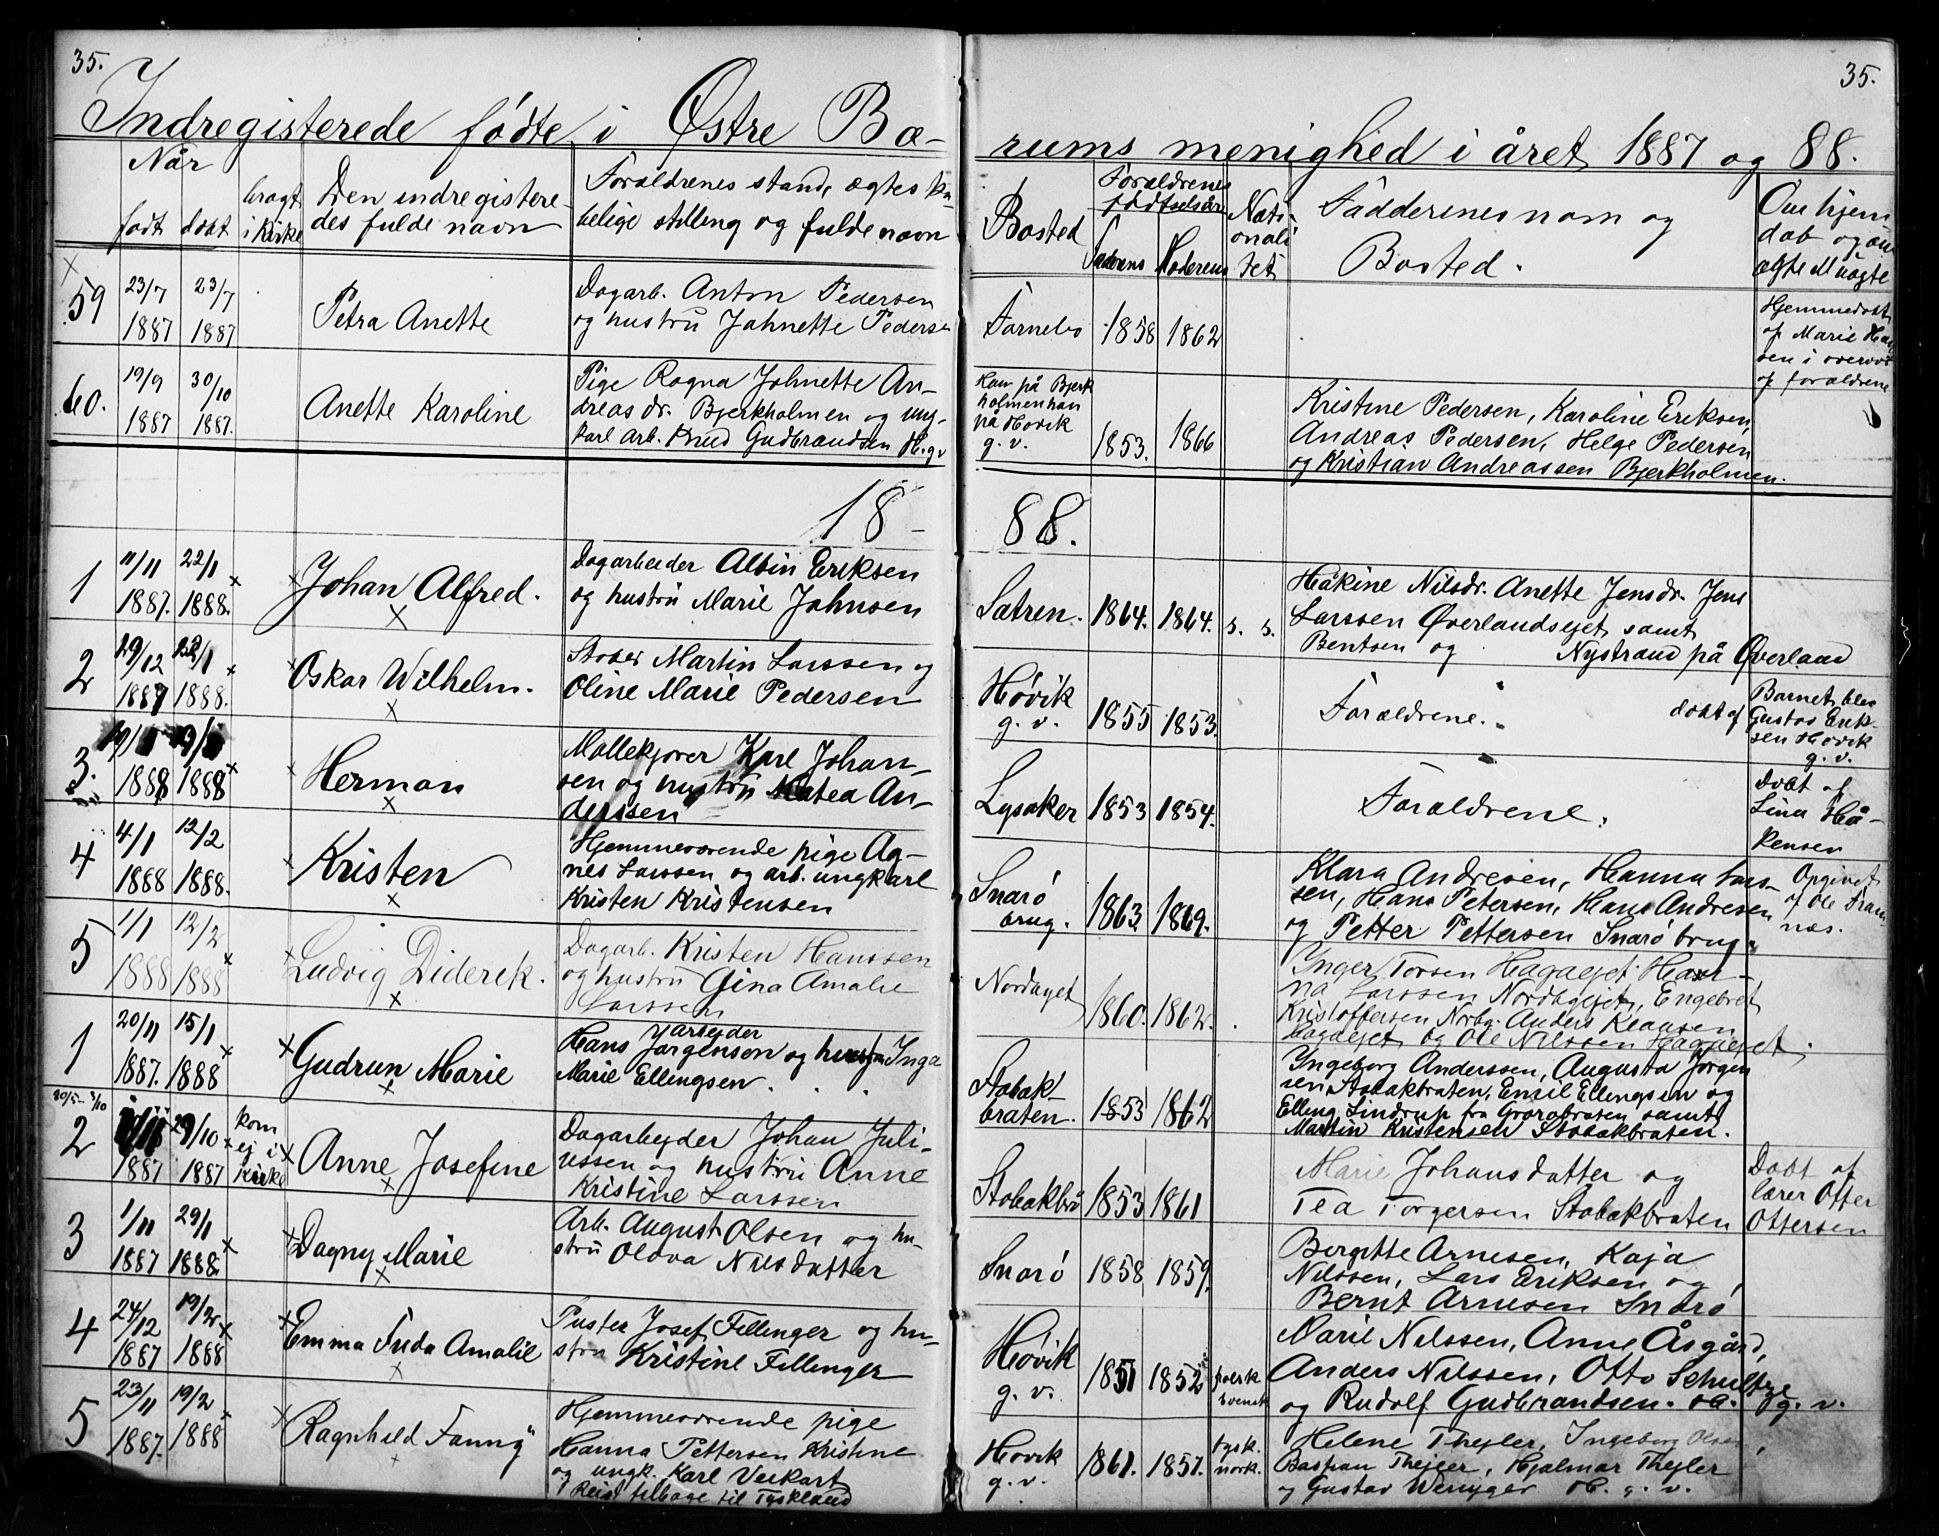 35.
35.
Indregisterede födte i Østre Bæ-
rums menighed i året 1887 og 88.
Når
født
døbt
bragt
i Kirke
Den indregistere-
des fulde navn
Forældrenes stand, ægteska-
belige stilling og fulde navn
Bosted
Forældrenes
fødselsår
Faderens
Moderens
Nati-
onali
tet
Fadderenes navn og
Bosted.
Om hjem
døb og om
ægte uægte
59
23/7
1887
23/7
1887
Petra Anette
Dagarb. Anton Pedersen
og hustru Johnette Pedersen
Fornebo
1858
1862
Hjemmedøbt
af Marie Han
sen i overvær
af forældrene
60.
19/9
1887
30/10
1887.
Anette Karoline
Pige Ragna Johnette An-
dreas dr. Bjerkholmen og ung-
karl Arb. Knud Gudbrandsen H. g. v
Hun på Bjerk
holmen han
på Høvik
g. v.
1853.
1866
Kristine Pedersen, Karoline Eriksen,
Andreas Pedersen, Helge Pedersen
og Kristian Andreassen Bjerkholmen.
18-
88.
1
11/11
1887.
22/1
1888.
Johan Alfred.
Dagarbeider Albin Eriksen
og hustru Marie Johnsen
Sætren.
1864.
1864.
s. s.
Håkine Nilsdr. Anette Jensdr. Jens
Larssen Øverlandsejet samt
Bentsen og Nystrand på Øverland
2
29/12
1887
22/1
1888.
Oskar Wilhelm.
Støber Martin Larssen og
Oline Marie Pedersen
Høvik
g. v.
1855
1853.
Forældrene.
døbt af
Barnet blev
Gustav Erik-
sen Høvik
g. v.
3.
1888
1888
Herman
Møllekjører Karl Johan-
sen og hustru Matea An-
derssen
Lysaker
1853
1854.
Forældrene.
Døbt af
Lina Hå-
kensen
4
4/1
1888
12/2
1888.
Kristen
Hjemmeværende pige Ag-
nes Larssen og arb. ungkarl
Kristen Kristensen
Snarø
brug.
1863
1869.
Klara Andresen, Hanna Lars-
sen, Hans Petersen, Hans Andresen
og Petter Pettersen Snarøbrug.
Opgivet
af Ole Fram
næs.
5
1/1
1888
12/2
1888
Ludvig Diderek.
Dagarb. Kristen Hanssen
og hustru Gina Amalie
Larssen
Nordbyejet
1860.
1862.
Inger Torsen Hagaejet. Han-
na Larssen Nordbyejet, Engebret
Kristoffersen Norbg. Anders Klausen
Hagaejet og Ole Nilssen Hagaejet.
1
20/11
1887.
15/1
1888
Gudrun Marie
arbejder
Hans Jørgensen og hustru Inga
Marie Ellingsen.
Stabæk-
bråten.
1853
1862
Ingeborg Anderssen, Augusta Jørgen
sen Stabækbråten, Emil Ellingsen og
Elling Lindrup fra Gråråbråten samt
Martin Kristensen Stabækbråten.
2
20/5- 3/10
1887
29/10
1887
kom
ej i
kirke
Anne Josefine
Dagarbejder Johan Juli-
ussen og hustru Anne
Kristine Larssen
Stabækbrå
1853
1861
Marie Johansdatter og
Tea Torgersen Stabækbråten
Døbt af
lærer Otter
Ottersen
3
1/11
1887
29/1
1888.
Dagny Marie
Arb. August Olsen og hu-
stru Olava Nilsdatter
Snarø
1858
1859.
Bergitte Arnesen, Kaja
Nilssen, Lars Eriksen og
Bernt Arnesen Snarø
4
24/12
1887
19/2
1888
Emma Frida Amalie
Puster Josef Fellinger og hu-
stru Kristine Fellinger
Høvik
g. v.
1851
1852
polsk
svensk
Marie Nilssen, Anne Åsgård,
Anders Nilssen, Otto Schultze
og Rudolf Gudbrandsen. H. g. v.
5
23/11
1887.
19/2
1888
Ragnhild Fanny
Hjemmeværende pige
Hanna Pettersen Kristine
og ungk. Karl Veikart
Reist tilbage til Tyskland
Høvik
g. v.
1861.
1857.
tysk.
nork.
Helene Thejler, Ingeborg Olsen,
Bastian Thejler, Hjalmar Thejler
og Gustav Wernger H. g. v.